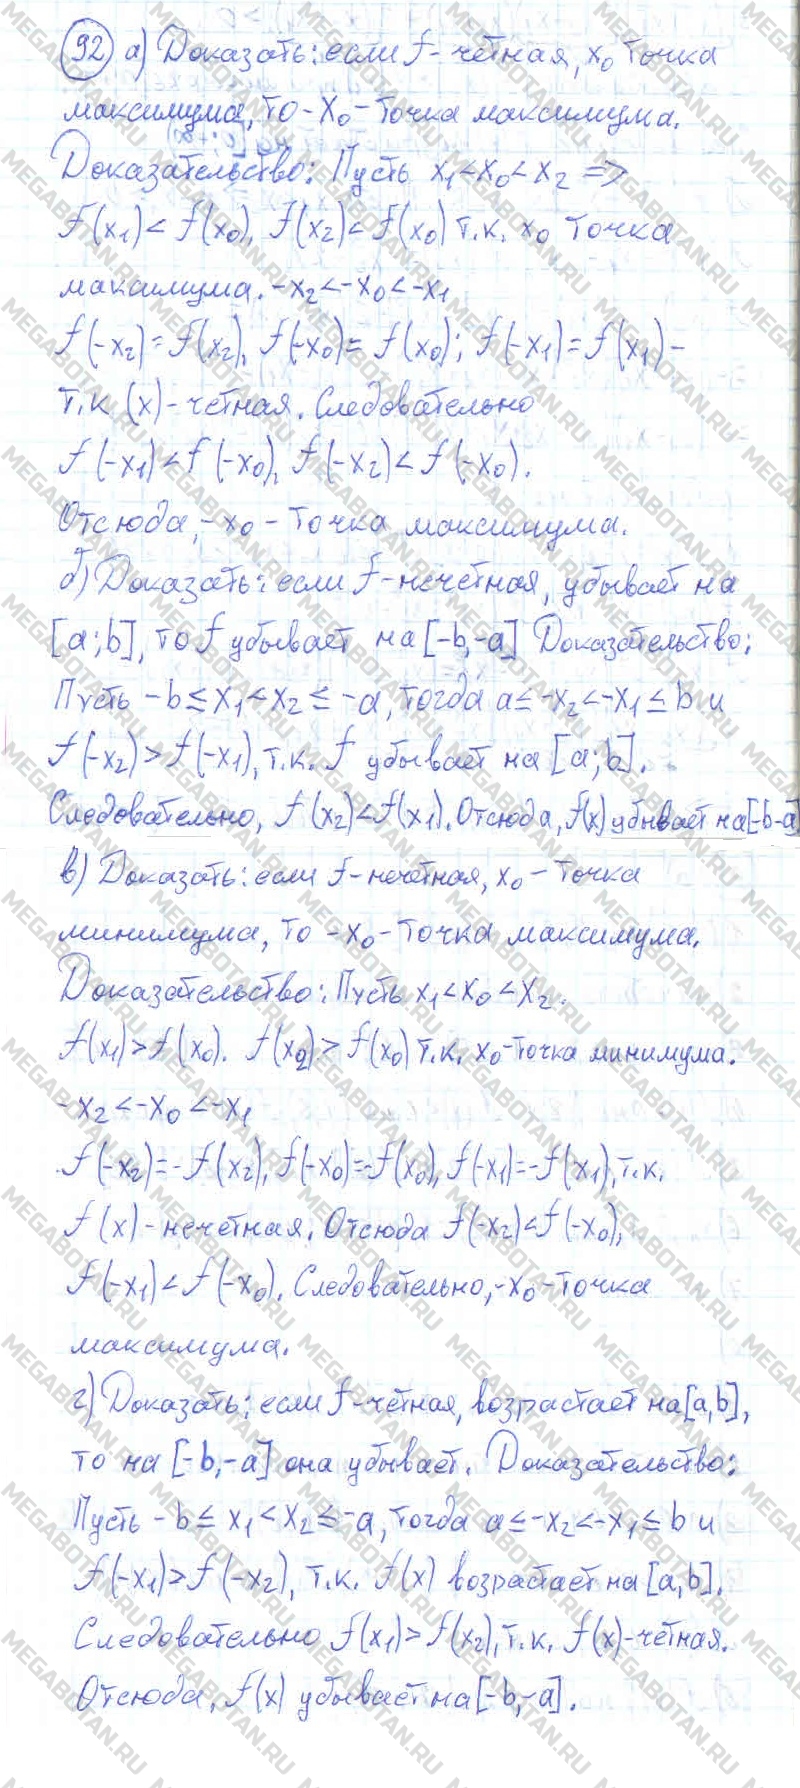 92 а) Доказать: если f- чётная, x₀ точка
максимума, то -x₀ - точка максимума.
Доказательство: Пусть x₁<x₀<x₂ =>
f(x₁)< f(x₀), f(x₂)< f(x₀) т.к. x₀ точка
максимума. -x₂<-x₀<-x₁
f(-x₂)=f(x₂), f(-x₀)= f(x₀); f(-x₁)=f(x₁)-
т.к (x)-чётная. Следовательно
f(-x₁)<f(-x₀), f(-x₂)< f(-x₀).
Отсюда, -x₀ - точка максимума.
б) Доказать: если f-нечётная, убывает на
[a;b], то f убывает на [-b,-a] Доказательство:
Пусть -b≤x₁<x₂≤-a, тогда a≤-x₂<-x₁≤b и
f(-x₂)>f(-x₁), т.к. f убывает на [a;b].
Следовательно, f(x₂)<f(x₁). Отсюда, f(x) убывает на [-b-a]
в) Доказать: если f-нечётная, x₀ - точка
минимума, то -x₀ - точка максимума.
Доказательство: Пусть x₁<x₀<x₂.
f(x₁)>f(x₀). f(x₂)>f(x₀) т.к. x₀-точка минимума.
-x₂<-x₀<-x₁
f(-x₂)=-f(x₂), f(-x₀)=-f(x₀), f(-x₁)=-f(x₁), т.к.
f(x)-нечётная. Отсюда f(-x₂)<f(-x₀),
f(-x₁)<f(-x₀). Следовательно, -x₀-точка
максимума.
г) Доказать: если f-чётная, возрастает на [a,b],
то на [-b,-a] она убывает. Доказательство:
Пусть -b≤x₁<x₂≤-a, тогда a≤-x₂<-x₁≤b и
f(-x₁)>f(-x₂), т.к. f(x) возрастает на [a,b].
Следовательно f(x₁)>f(x₂), т.к. f(x)-чётная.
Отсюда, f(x) убывает на [-b,-a].
MEGABOTAN.RU